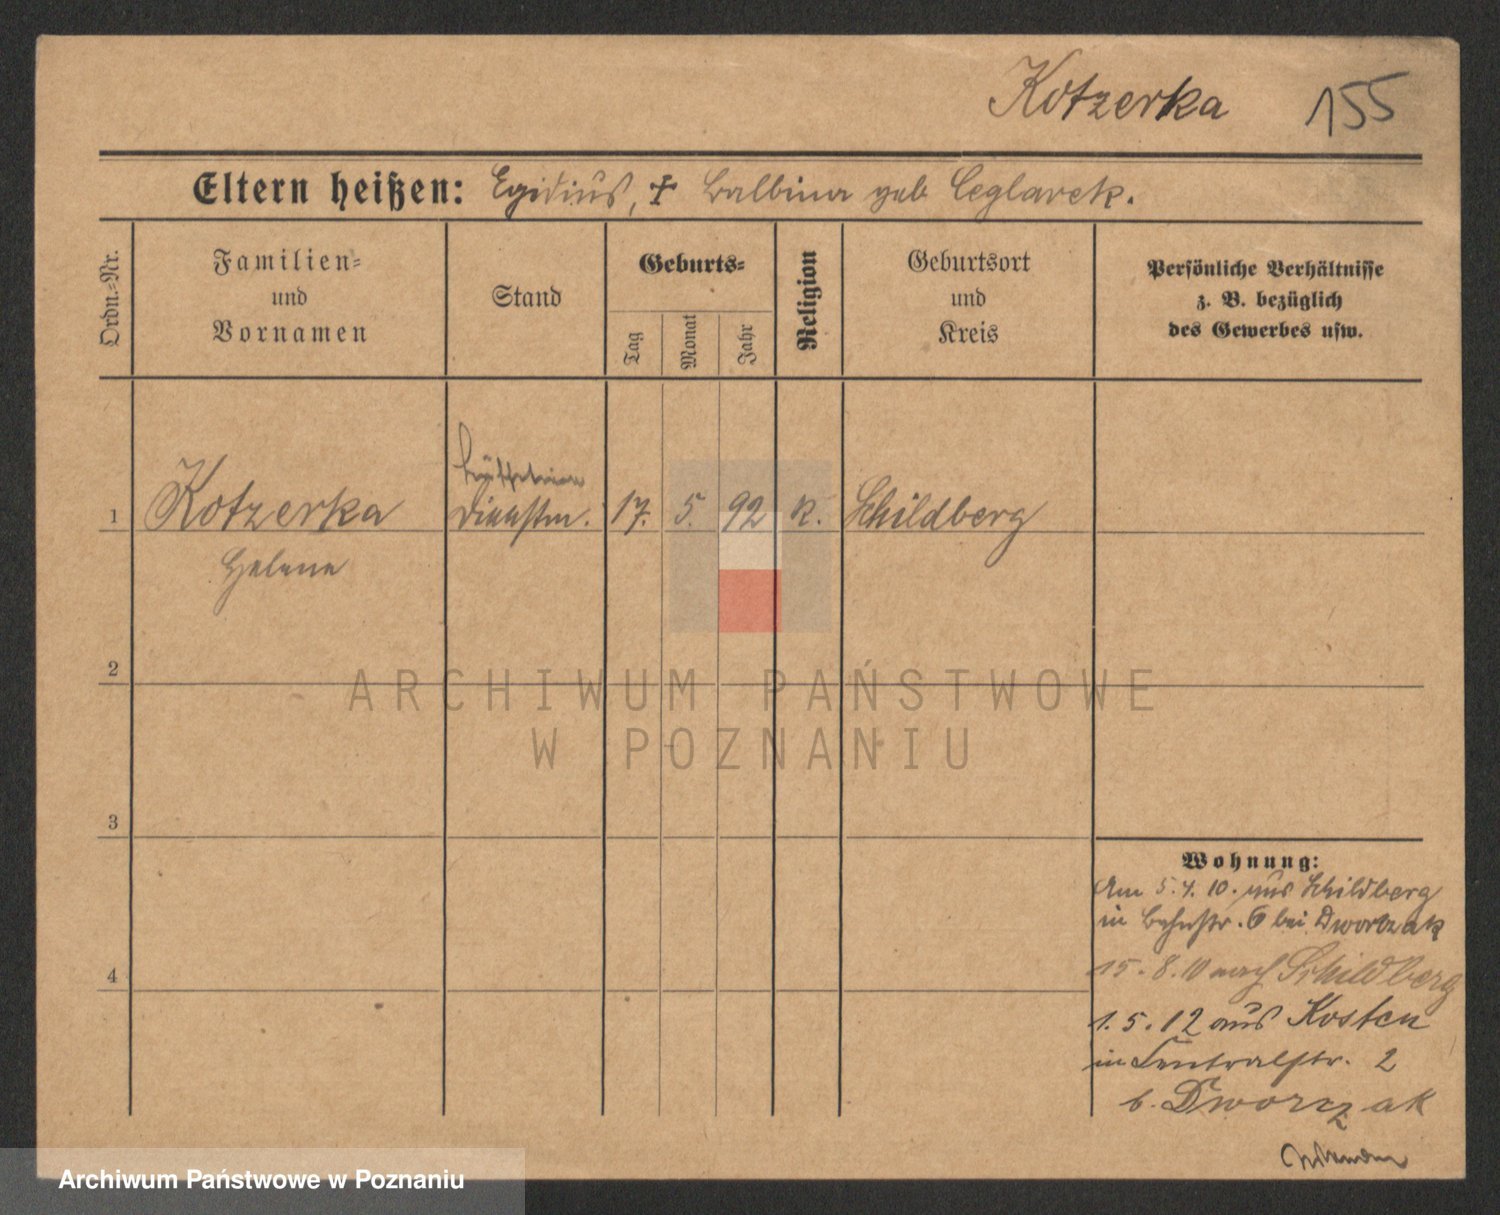 Kotzerka 155
Eltern heißen: Egidius, ☩ Balbina geb Ceglarek.
Ordn.-Nr.
Familien-
und
Vornamen
Stand
Geburts-
Tag
Monat
Jahr
Religion
Geburtsort
und
Kreis
Persönliche Verhältnisse
z. B. bezüglich
des Gewerbes usw.
1 Kotzerka Dienstm. 17. 5. 92 K. Schildberg
Helene
2
3
4
Wohnung:
Am 5.4.10. aus Schildberg
in Bahnstr. 6 bei Dworczak
15.8.10 nach Schildberg
1.5.12 aus Kosten
in Centralstr. 2
b. Dworczak
ARCHIWUM PAŃSTWOWE
W POZNANIU
Archiwum Państwowe w Poznaniu